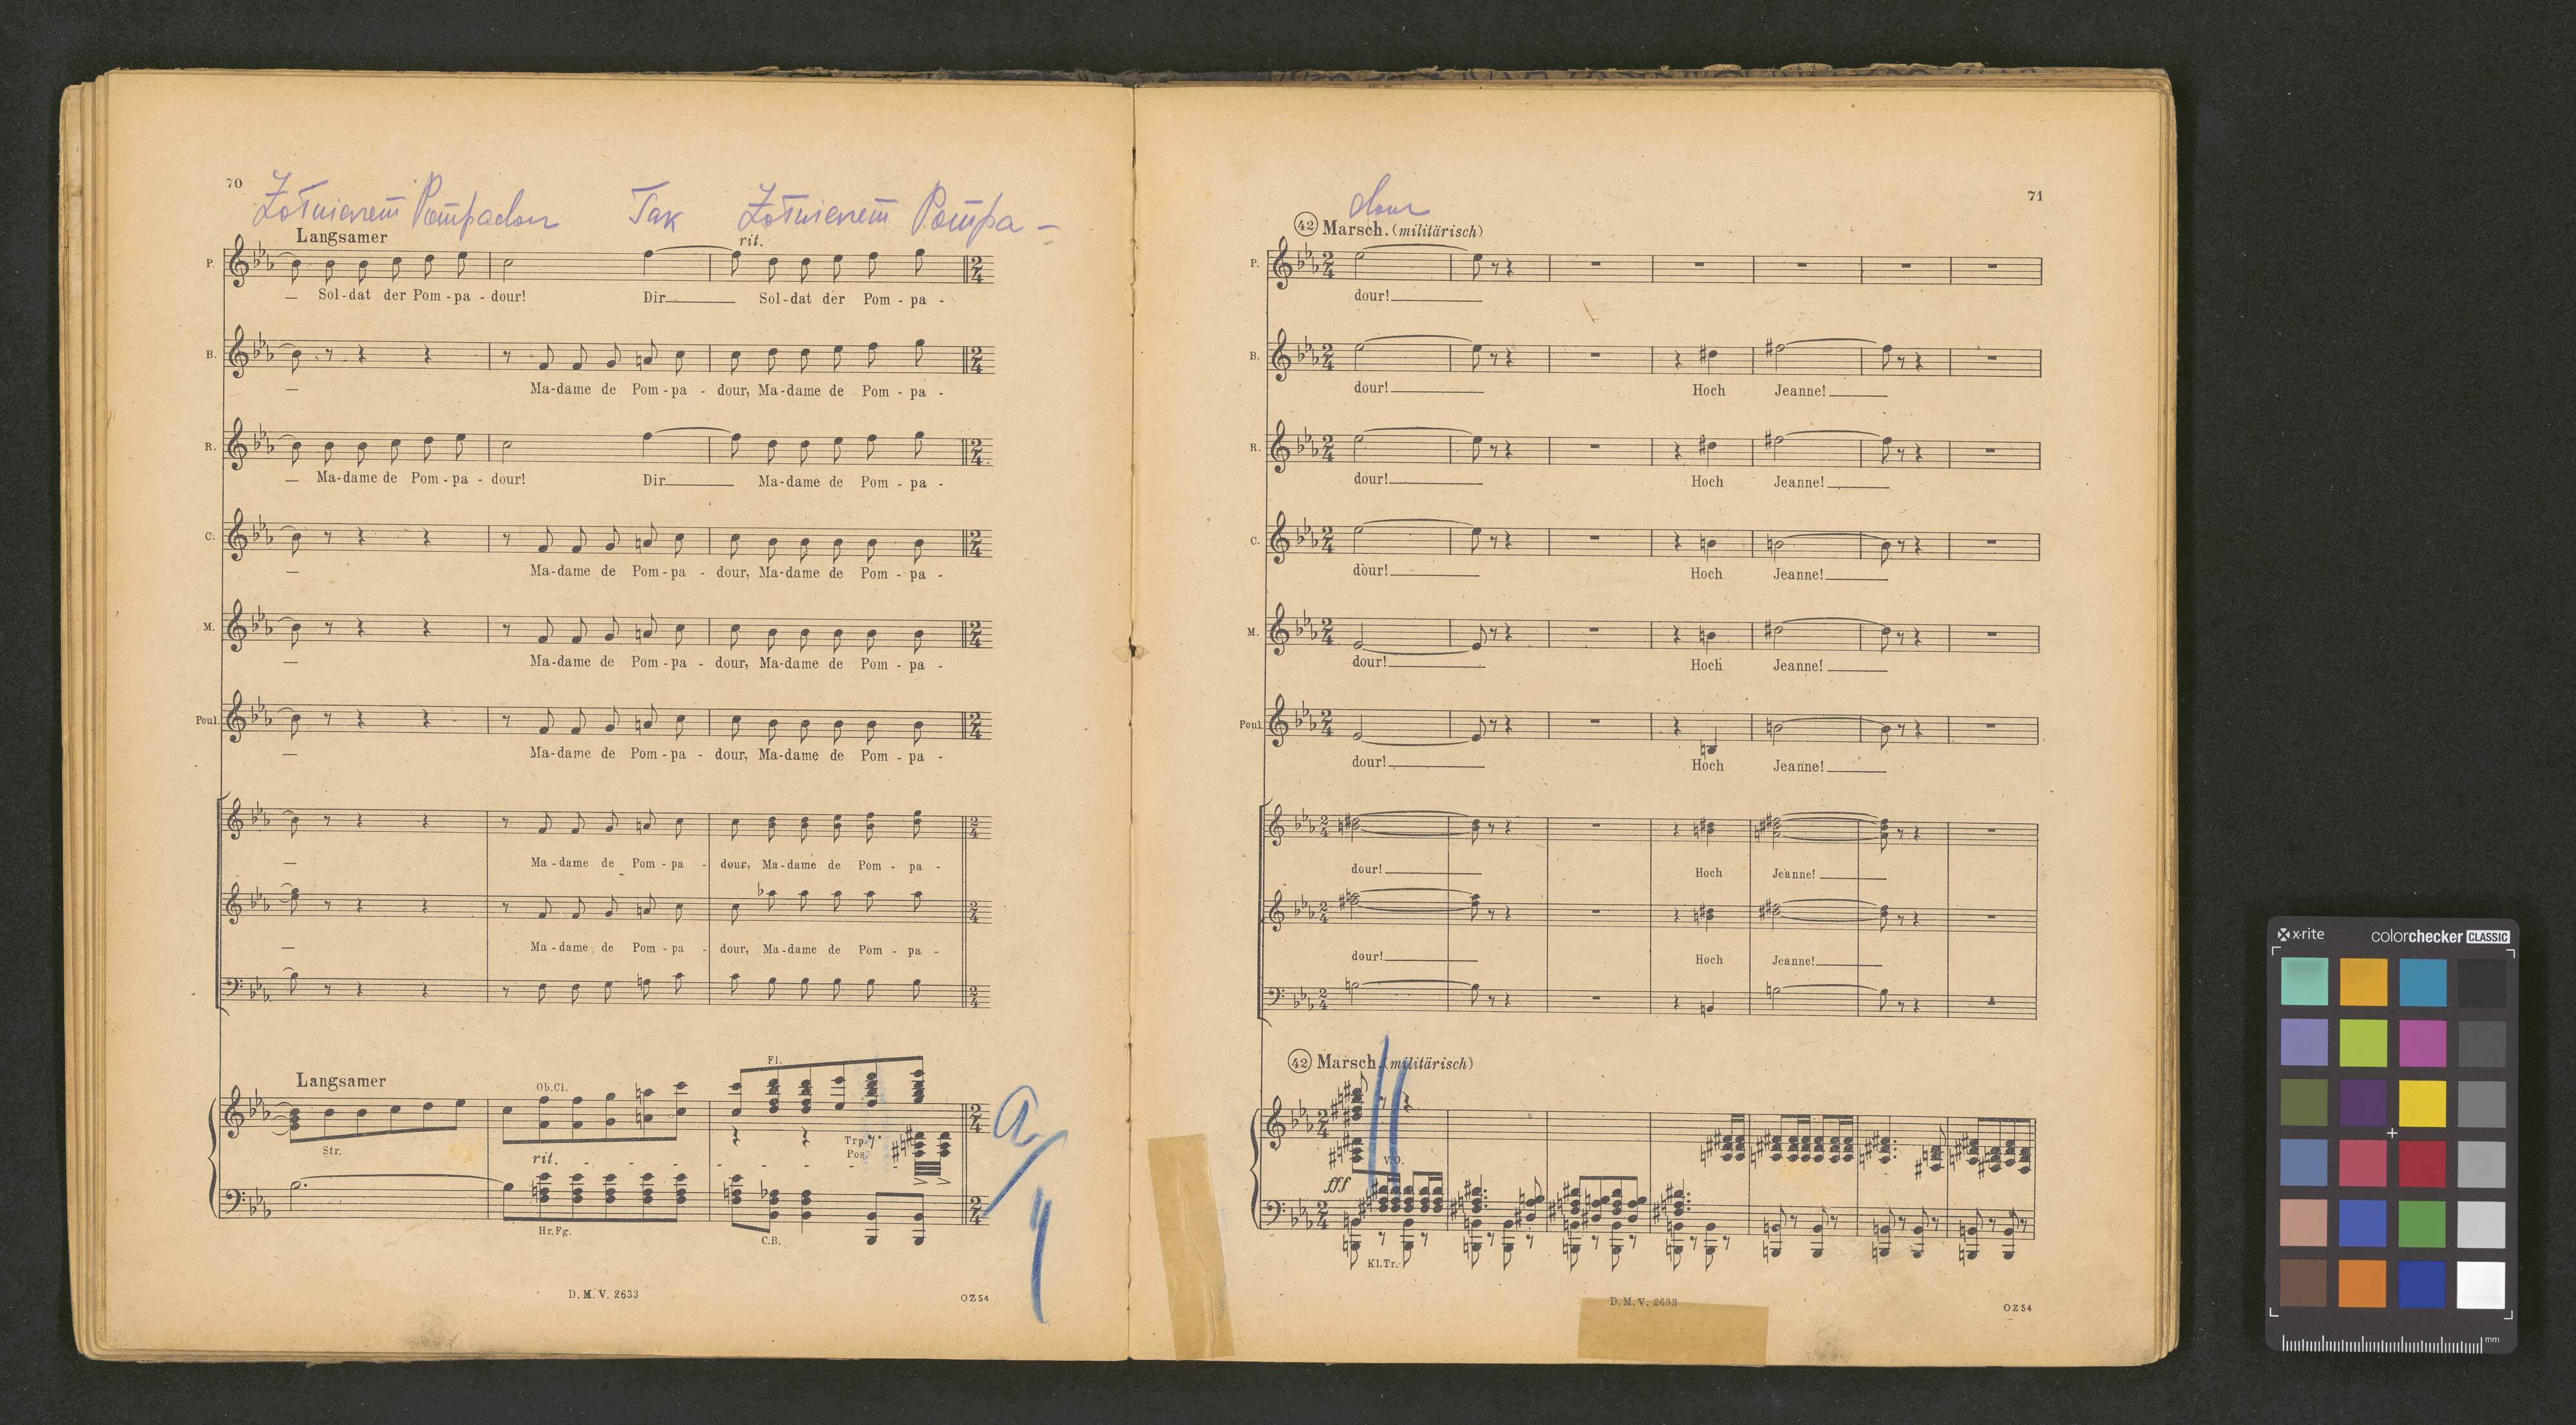 70
Żołnierem Pompadour Tak Żołnierem Pompa -
Langsamer
rit.
P.
— Sol-dat der Pom - pa - dour! Dir Sol-dat der Pom - pa -
B.
Ma-dame de Pom - pa - dour, Ma-dame de Pom - pa -
R.
— Ma-dame de Pom - pa - dour! Dir Ma-dame de Pom - pa -
C.
Ma-dame de Pom - pa - dour, Ma-dame de Pom - pa -
M.
Ma-dame de Pom - pa - dour, Ma-dame de Pom - pa -
Poul.
Ma-dame de Pom - pa - dour, Ma-dame de Pom - pa -
Ma - dame de Pom - pa - dour, Ma - dame de Pom - pa -
Ma - dame de Pom - pa - dour, Ma - dame de Pom - pa -
Fl.
Langsamer
Ob.Cl.
Str.
Trp.
Pos.
rit.
Hr.Fg.
C.B.
D. M. V. 2633
OZ54
71
dour
42 Marsch. (militärisch)
P.
dour!
B.
dour! Hoch Jeanne!
R.
dour! Hoch Jeanne!
C.
dour! Hoch Jeanne!
M.
dour! Hoch Jeanne!
Poul.
dour! Hoch Jeanne!
dour! Hoch Jeanne!
dour! Hoch Jeanne!
42 Marsch. (militärisch)
fff
Kl.Tr.
D. M. V. 2633
OZ54
x-rite
colorchecker CLASSIC
mm